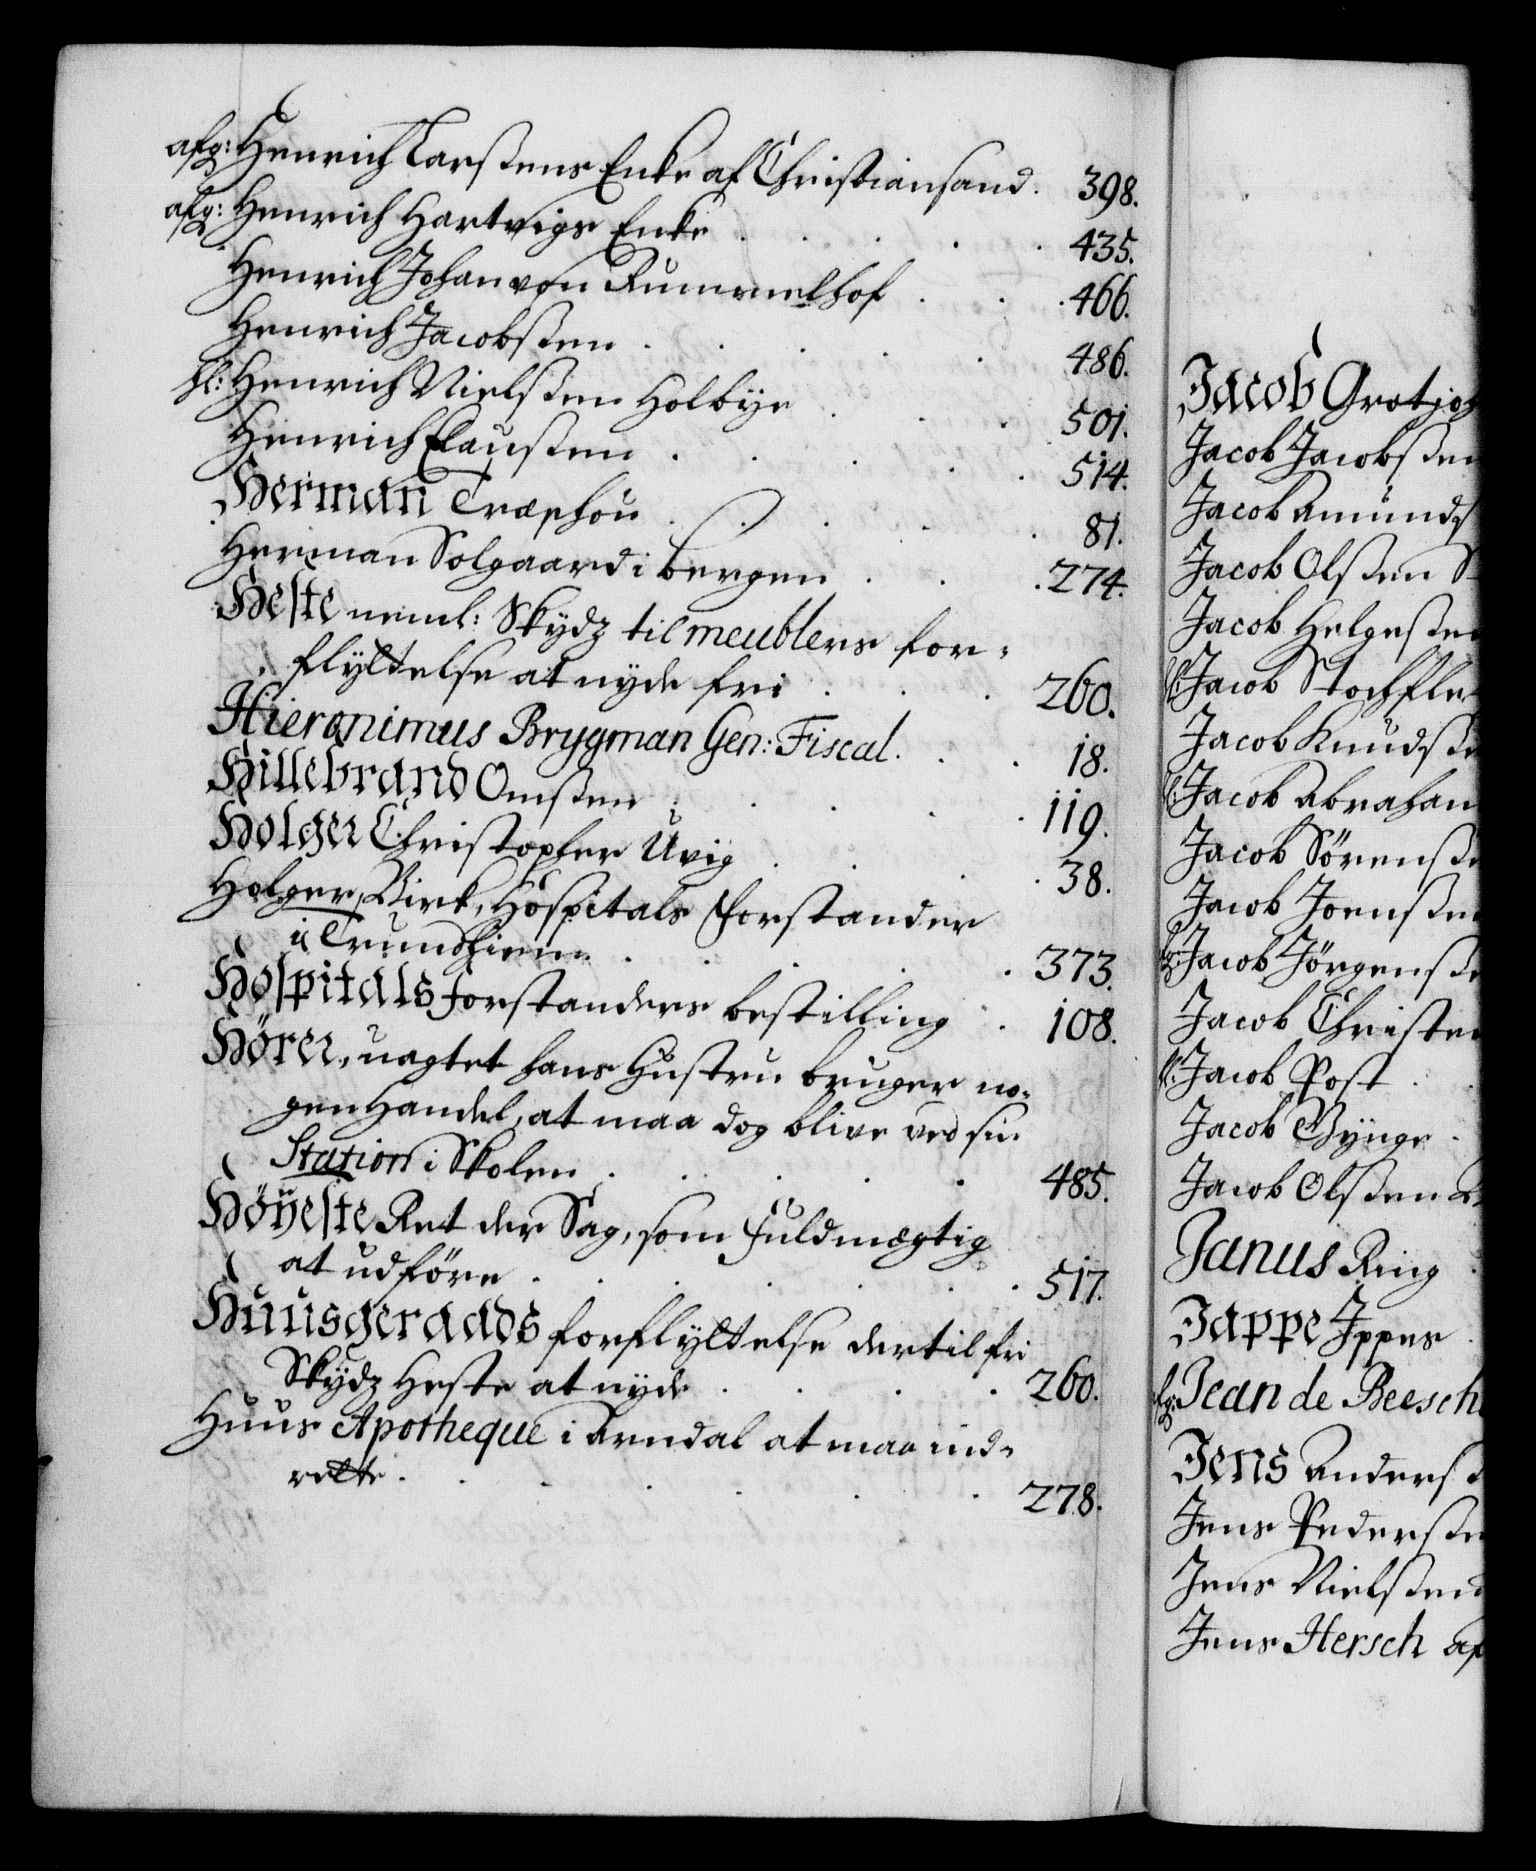 afg: Henrich Carstens Enke af Christiansand. 398.
afg: Henrich Hartvigs Enke . . . . . 435.
Henrich Johan von Rummelhof . . . 466.
Henrich Jacobsen . . . . . 486.
Henrich Nielsen Holbye . . . 501.
Henrich Clausen . . . . . 514.
Herman Træphou . . . . . 81.
Herman Solgaard i bergen . . . 274.
Heste neml: Skydz til meublers for-
flyttelse at nyde fri . . . 260.
Hieronimus Brygman Gen: Fiscal. . . 18.
Hillebrand Omsen . . . . . 119.
Holger Christopher Urig . . . . 38.
Holger Birk, Hospitals Forstander
i Trundhiem . . . . . 373.
Hospitals forstanders bestilling . 108.
Hörer, uagtet hans Hustru bruger no-
gen Handel, at maa dog blive ved sin
Station i Skolen . . . . . 485.
Höyeste Ret der Sag, som fuldmægtig
at udföre . . . . . . 517.
Huusgeraads forflyttelse dertil fri
Skydz Heste at nyde . . . . 260.
Huus Apotheque i Arndal at maa ind-
rette . . . . . . . 278.
Jacob
Jacob Jacobsen
Jacob Amunds
Jacob Olsen S
Jacob Helgesen
Jacob Stochfle
Jacob Knudse
Jacob Abraham
Jacob Sörense
Jacob Joensen
Jacob Jörgense
Jacob Christen
Jacob Post .
Jacob Bynge .
Jacob Olsen
Janus Ring .
Jappe Ippes .
Jean de Beesch
Jens Anders
Jens Pedersen
Jens Nielsen
Jens Hersch af